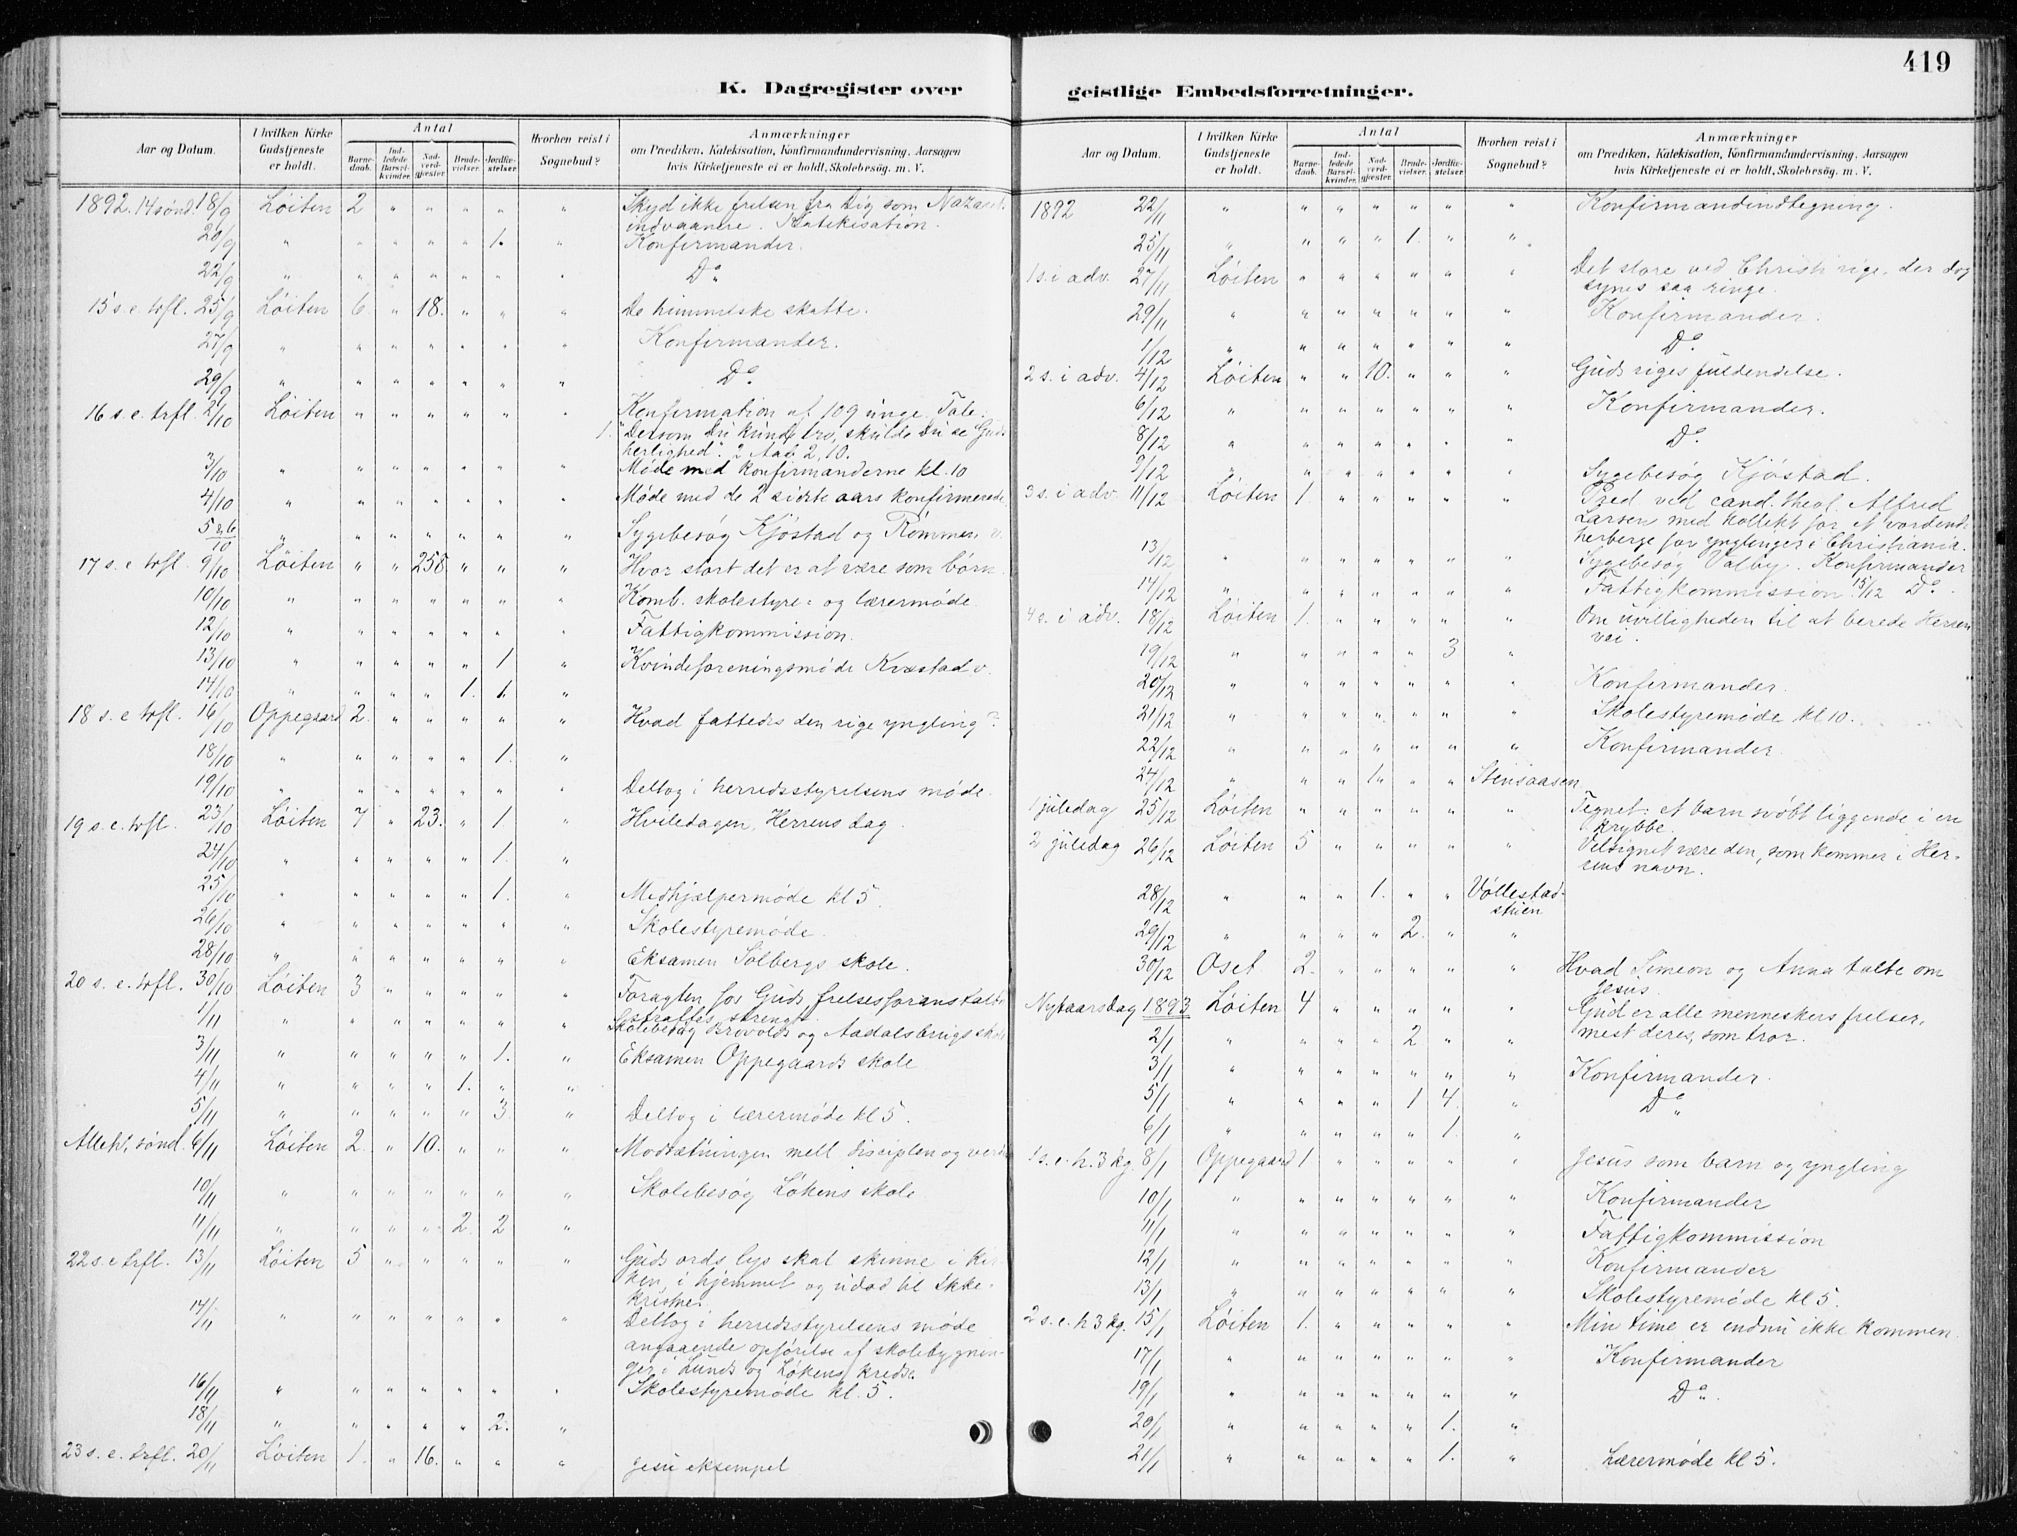 419
K. Dagregister over geistlige Embedsforretninger.
Aar og Datum. I hvilken Kirke Gudstjeneste er holdt. Antal Barnedaab. Indledede Barselkvinder. Nadverdgjester. Brudevielser. Jordfæstelser. Hvorhen reist i Sognebud? Anmærkninger om Prædiken, Katekisation, Konfirmandundervisning, Aarsagen hvis Kirketjeneste ei er holdt, Skolebesøg. m. V.
1892. 14 sønd. 18/9 Løiten 2 " " " " " Skyd ikke frelsen fra Dig som Nazaret.
indvaanere. Katekisation.
20/9 " " " " " 1. " Konfirmander.
22/9 " " " " " " " Do
15 s. e. trfl. 25/9 Løiten 6. " 18. " " " De himmelske skatte.
27/9 " " " " " " " Konfirmander.
29/9 " " " " " " " Do
16 s. e. trfl. 2/10 Løiten " " " " " " Konfirmation af 109 unge. Tale.
1. "Dersom Du kunde tro, skulde Du se Guds
herlighed". 2
3/10 " " " " " " " Møde med konfirmanderne kl. 10
4/10 " " " " " " " Møde med de 2 sidste aars konfirmerede
5 & 6/10 " " " " " " " Sygebesøg Kjøstad og Rømmen
17 s. e. trfl. 9/10 Løiten " " 258 " " " Hvor stort det er at være som børn.
10/10 " " " " " " " Komb. skolestyre= og lærermøde.
12/10 " " " " " " " Fattigkommission.
13/10 " " " " " 1 " Kvindeforeningsmøde Kvæstad
14/10 " " " " 1. 1. "
18 s. e. trfl. 16/10 Oppegaard 2. " " " " " Hvad fattedes den rige yngling?
18/10 " " " " " 1. "
19/10 " " " " " " " Deltog i herredsstyrelsens møde.
19 s. e. trfl. 23/10 Løiten 7 " 23. " 1 " Hviledagen, Herrens dag
24/10 " " " " " 1. "
25/10 " " " " " 1. " Medhjælpermøde kl 5.
26/10 " " " " " " " Skolestyremøde.
28/10 " " " " " " " Eksamen Solbergs skole.
20 s. e. trfl. 30/10 Løiten 3 " " " " " Foragten for Guds frelsesforanstalt
straffes strengt.
1/11 " " " " " " " Skolebesøg Brovolds og Aadalsbrugs skole
3/11 " " " " " 1. " Eksamen Oppegaards skole
4/11 " " " " 1. " "
5/11 " " " " " 3. " Deltog i lærermøde kl 5.
Alleh. sønd. 6/11 Løiten 2. " 10. " " " Modsætningen mell disciplen og verd
10/11 " " " " " " " Skolebesøg Løkens skole
11/11 " " " " 2. 2 "
22 s. e. trfl. 13/11 Løiten 5 " " " " " Guds ords lys skal skinne i kir-
ken, i hjemmet og udad til ikke-
kristne.
14/11 " " " " " " " Deltog i herredsstyrelsens møde
angaaende opførelse af skolebygnin-
ger i Lunds og Løkens kredse
16/11 " " " " " " " Skolestyremøde kl. 5.
18/11 " " " " " 2. "
23 s. e. trfl. 20/11 Løiten 1. " 16. " " " Jesu eksempel
Aar og Datum. I hvilken Kirke Gudstjeneste er holdt. Antal Barnedaab. Indledede Barselkvinder. Nadverdgjester. Brudevielser. Jordfæstelser. Hvorhen reist i Sognebud? Anmærkninger om Prædiken, Katekisation, Konfirmandundervisning, Aarsagen hvis Kirketjeneste ei er holdt, Skolebesøg. m. V.
1892 22/11 " " " " " " " Konfirmandindtegning.
25/11 " " " " 1. " "
1 s. i adv. 27/11 Løiten " " " " " " Det store ved Christi rige, der dog
synes saa ringe.
29/11 " " " " " " " Konfirmander.
1/12 " " " " " " " Do
2 s. i adv. 4/12 Løiten " " 10. " " " Guds riges fuldendelse.
6/12 " " " " " " " Konfirmander.
8/12 " " " " " " " Do
9/12 " " " " " " " Sygebesøg Kjøstad.
3 s. i adv. 11/12 Løiten 1. " " " " " Præd ved cand. theol. Alfred
Larsen med kollekt for et vordende
herberge for ynglinger i Christiania.
13/12 " " " " " " " Sygebesøg Valby. Konfirmander
14/12 " " " " " " " Fattigkommission. 15/12 Do.
4 s. i adv. 18/12 Løiten 1. " " " " " Om uvilligheden til at berede Herren
vei.
19/12 " " " " " 3 "
20/12 " " " " " " " Konfirmander.
21/12 " " " " " " " Skolestyremøde kl 10.
22/12 " " " " " " " Konfirmander
24/12 " " " 1. " " Stensaasen
1 juledag 25/12 Løiten " " " " " " Tegnet: et barn svøbt liggende i en
krybbe.
2 juledag 26/12 Løiten 5 " " " " " Velsignet være den, som kommer i Her-
rens navn.
28/12 " " " 1. " " Vøllestad-
stuen
29/12 " " " " 2. " "
30/12 Oset 2. " " " " " Hvad Simeon og Anna talte om
Jesus.
Nytaarsdag 1893 Løiten 4 " " " " " Gud er alle menneskers frelser,
mest deres, som tror.
2/1 " " " " 2 " "
3/1 " " " " " " " Konfirmander.
5/1 " " " " 1 4. " Do
6/1 " " " " " 1. "
1 s. e. h. 3 kg. 8/1 Oppegaard 1 " " " " " Jesus som barn og yngling
10/1 " " " " " " " Konfirmander
11/1 " " " " " " " Fattigkommission
12/1 " " " " " " " Konfirmander
13/1 " " " " " " " Skolestyremøde kl 5.
2 s. e. h 3 kg. 15/1 Løiten 1. " " " " " Min time er endnu ikke kommen.
17/1 " " " " " " " Konfirmander
19/1 " " " " " " " Do.
20/1 " " " " " 1. "
21/1 " " " " " 1. " Lærermøde kl 5.